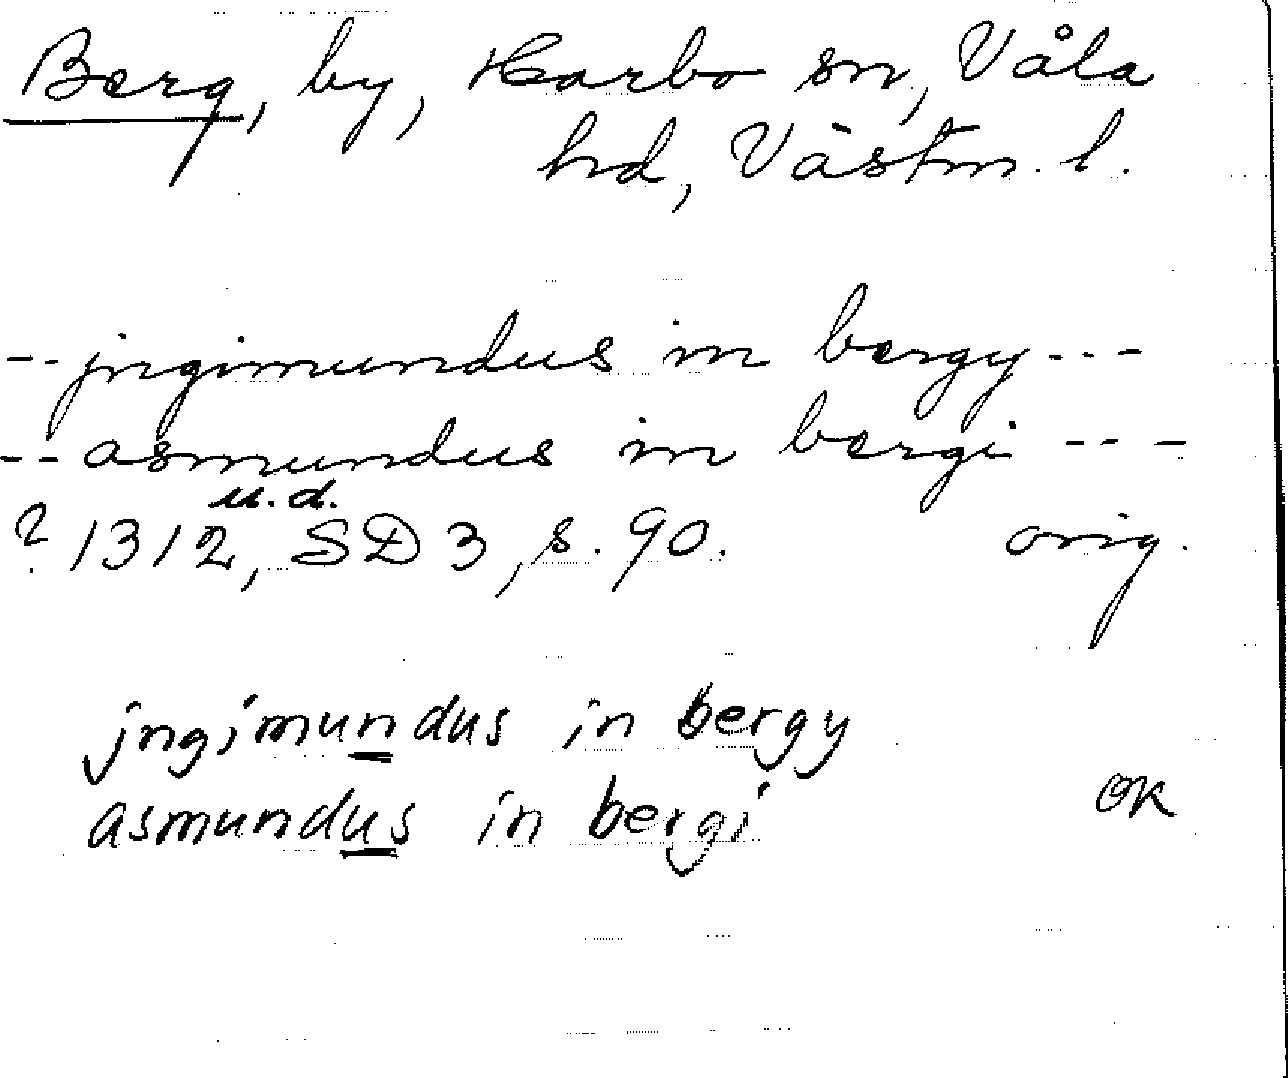 Berg, by, Harbo sn, Våla
hd, Västm. l.
-- jngimundus in bergy ---
-- asmundus in bergi ---
u.d.
? 1312, SD 3, s. 90. orig.
jngimundus in bergy
asmundus in bergi ok